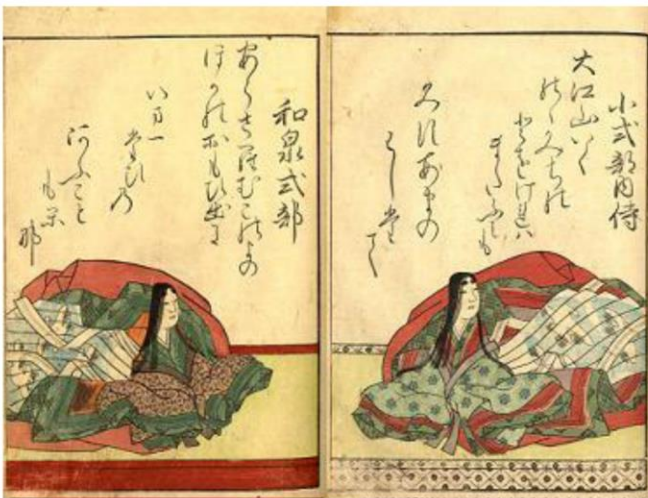 小式部内侍
大江山いく
のゝみちの
とをけれは
またふみも
みすあまの
はしたて
和泉式部
あらさらむこのよの
ほかのおもひ出に
いま一
たひの
あふこと
もか
な